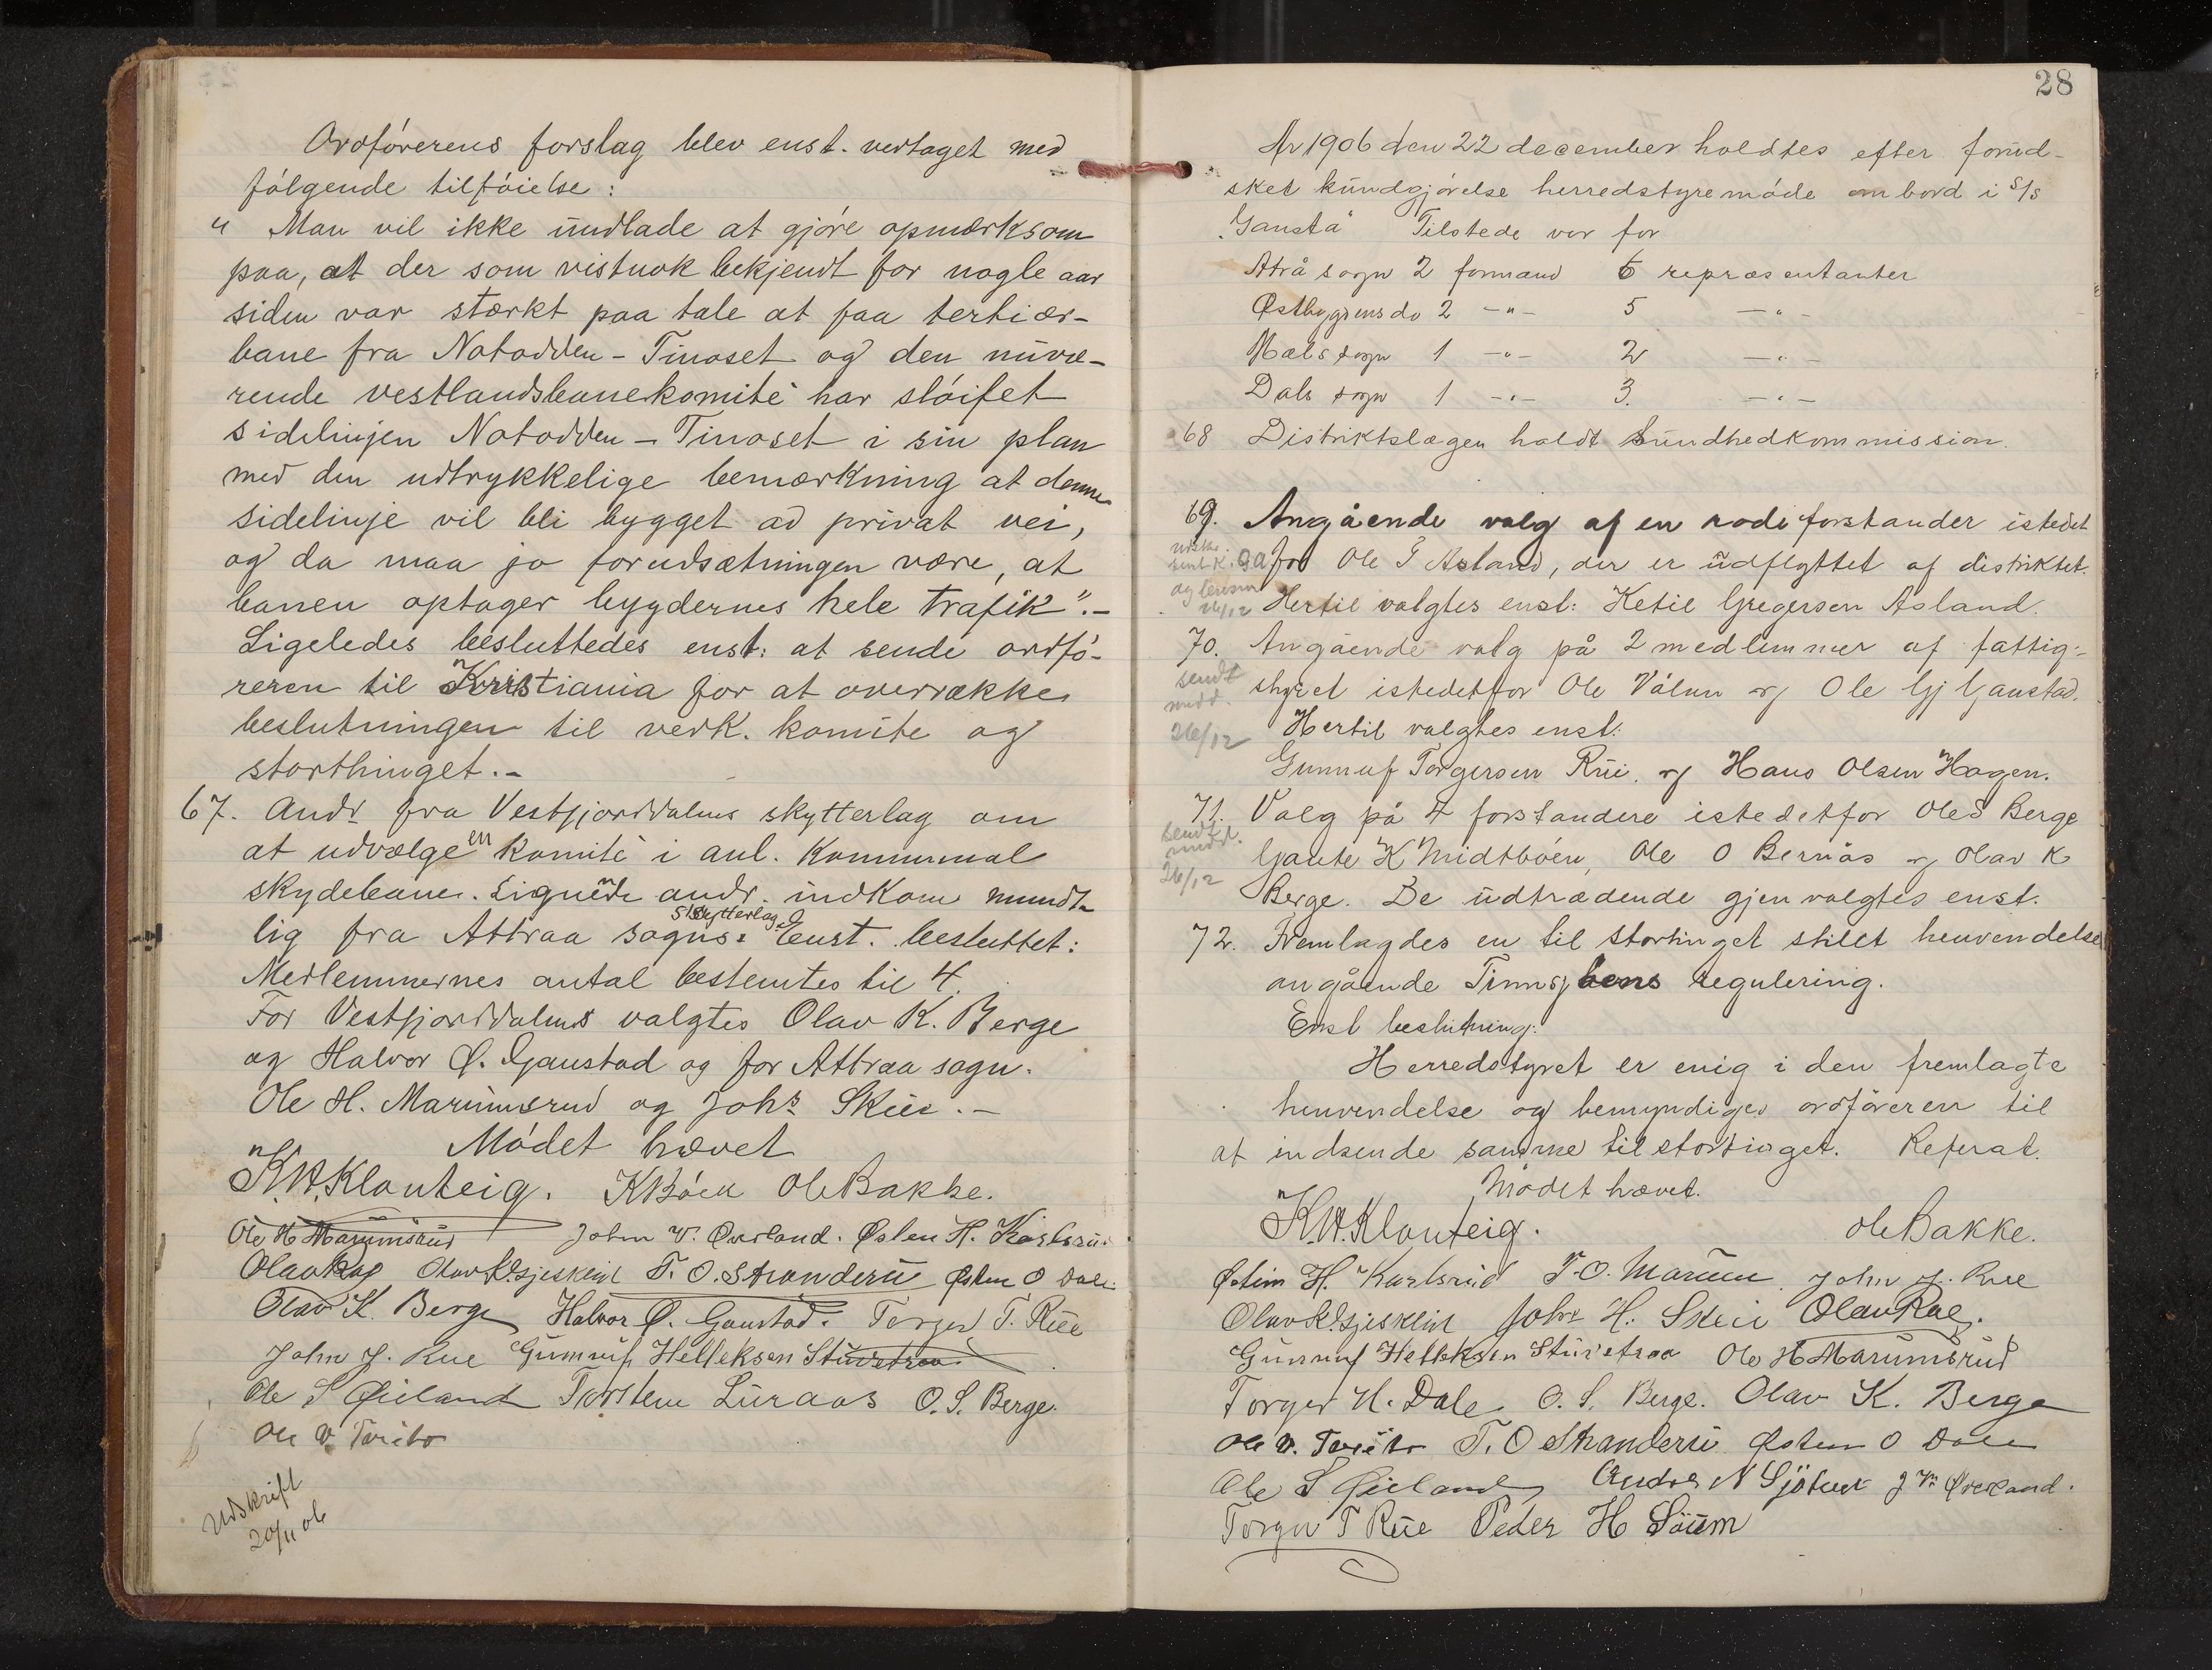 Ordførerens forslag blev enst. vedtaget med
følgende tilføielse:
" Man vil ikke undlade at gjøre opmærksom
paa, at der som vistnok bekjendt for nogle aar
siden var stærkt paa tale at faa tertiær-
bane fra Notodden - Tinoset og den nuvæ-
rende vestlandsbanekomité har sløifet
sidelinjen Notodden - Tinoset i sin plan
med den udtrykkelige bemærkning at denne
sidelinje vil bli bygget ad privat vei,
og da maa jo forudsætningen være, at
banen optager bygdernes hele trafik".-
Ligeledes besluttedes enst: at sende ordfø-
reren til Kristiania for at overrække
beslutningen til vedk. komite og
storthinget.-
67. Andr fra Vestfjorddalens skytterlag om
at udvælge en komité i anl. kommunal
skydebane. Lignende andr. indkom mundt-
lig fra Attraa sogns skytterlag. Enst. besluttet:
Medlemmernes antal bestemtes til 4.
For Vestfjorddalens valgtes Olav K. Berge
og Halvor Ø. Gaustad og for Attraa sogn.
Ole H. Marumsrud og Johs Skeie.-
Mødet hævet
K.A.Klonteig. KBøen OleBakke.
Ole H Marumsrud John V. Øverland. Østen H. Karlsrud
OlavRae Olav K. Gjesklin T. O. Stranderu Østen O Dale
Olav K. Berge Halvor Ø. Gaustad. Torger T. Rue
John J. Rue Gunnuf Helleksen Stuvetraa
Ole S Øieland Torsten Luraas O. S. Berge.
Ole V. Tveito
Udskrift
20/11 06
28
År 1906 den 22 december holdtes efter forud-
sket kundgjørelse herredstyremøde ombord i S/S
"Gausta" Tilstede var for
Atrå sogn 2 formænd 6 repræsentanter
Østbygdens do 2 -"- 5 -"-
Mæls sogn 1 -"- 2 -"-
Dals sogn 1 -"- 3. -"-
68 Distriktslægen holdt sundhedkommission.
69. Angående valg af en rodeforstander istedet
for Ole G Åsland, der er udflyttet af distriktet.
Hertil valgtes enst: Ketil Gregersen Åsland.
70. Angående valg på 2 medlemmer af fattig-
styret istedetfor Ole Våten og Ole Gj Gaustad.
sendt
medd.
26/12
Hertil valgtes enst:
Gunnuf Torgersen Rue. og Hans Olsen Hagen.
71. Valg på 4 forstandere istedetfor Ole S Berge
sendt
medd.
26/12
Gaute K Midtbøen, Ole O Bernås og Olav K
Berge. De udtrædende gjenvalgtes enst.
72. Fremlagdes en til stortinget stilet henvendelse
angående Tinnsjøens regulering.
Enst beslutning:
Herredstyret er enig i den fremlagte
henvendelse og bemyndiger ordføreren til
at indsende samme til stortinget. Referat.
Mødet hævet.
K.A.Klonteig. OleBakke.
Østen H. Karlsrud T. O. Marum John J. Rue
Olav K. Gjesklin Johs H. Skeie OlavRae.
Gunnuf Helleksen Stuvetraa Ole H Marumsrud
Torger H. Dale O. S. Berge. Olav K. Berge
Ole V. Tveito T. O Stranderu Østen O Dale
Ole S Øieland Andres N Sjøtveit J V. Øverland.
Torger T Rue Peder H Søum